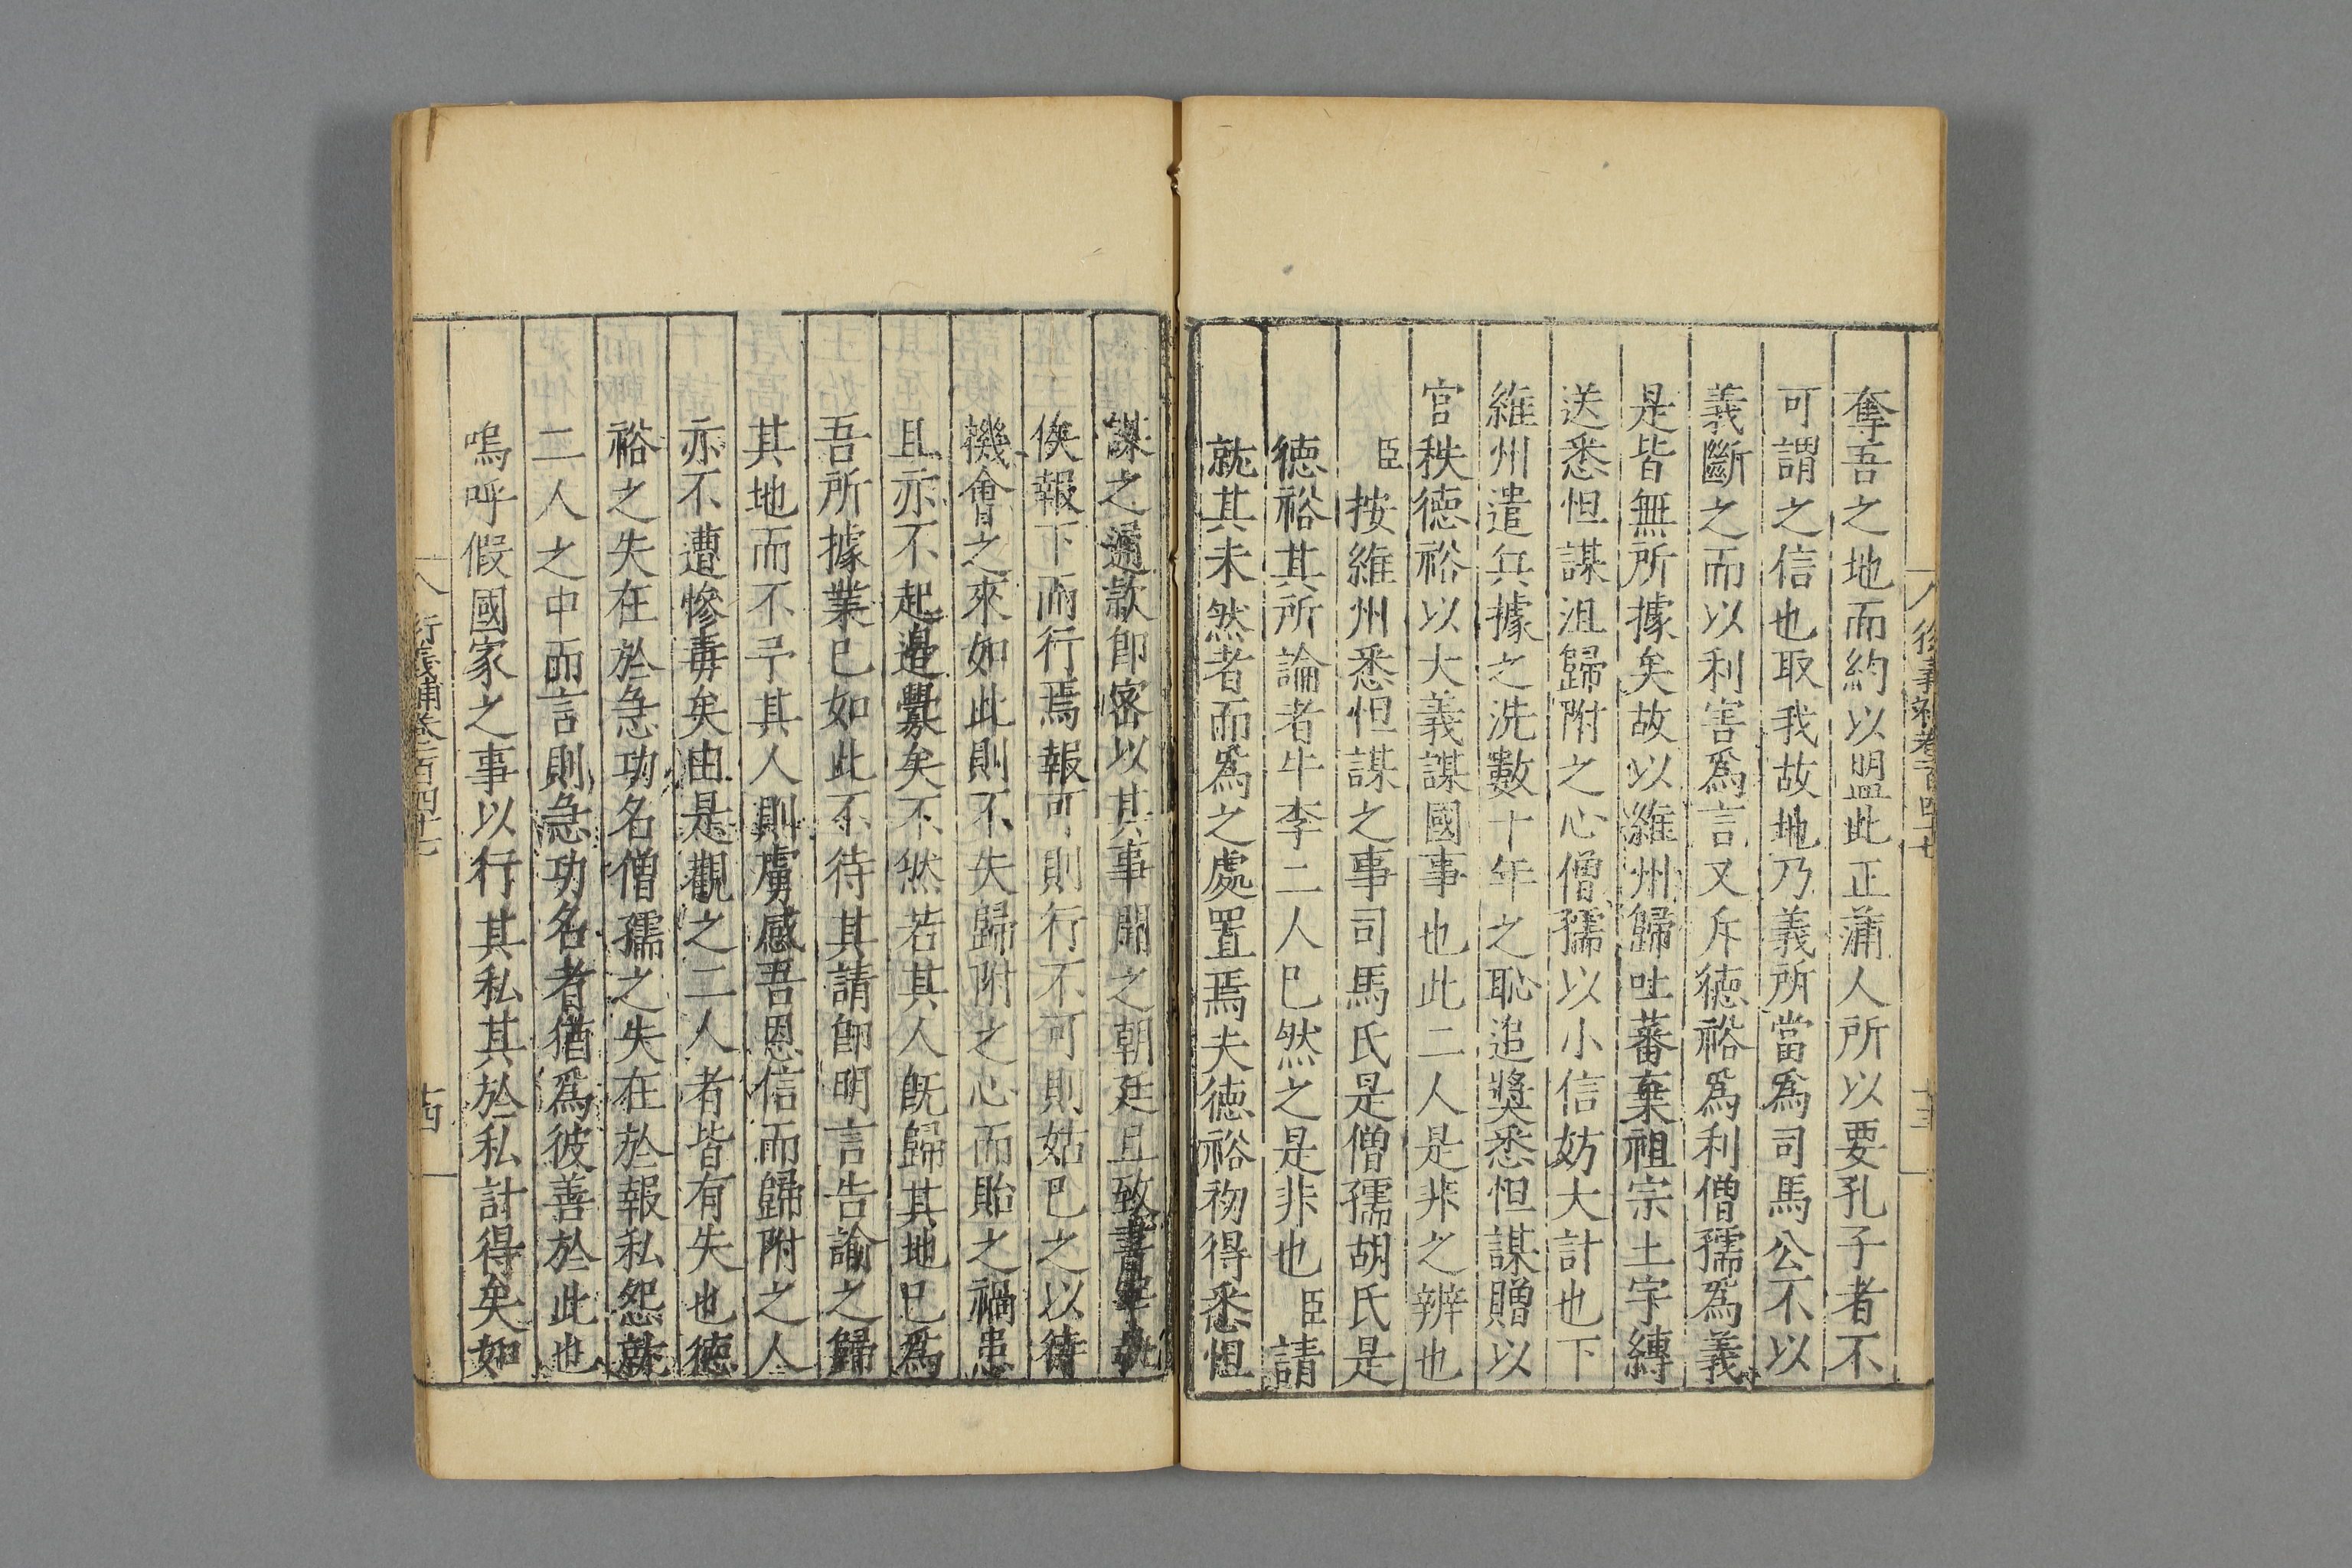 奪吾之地而約以盟此正蒲人所以要孔子者不
可謂之信也取我故地乃義所當爲司馬公不以
義斷之而以利害爲言又斥德裕爲利僧孺爲義
是皆無所據矣故以維州歸吐蕃棄祖宗土宇縛
送悉怛謀沮歸附之心僧孺以小信妨大計也下
維州遣兵據之洗數十年之恥追奬悉怛謀贈以
官秩德裕以大義謀國事也此二人是非之辨也
臣按維州悉怛謀之事司馬氏是僧孺胡氏是
德裕其所論者牛李二人已然之是非也臣請
就其未然者而爲之處置焉夫德裕初得悉怛
謀之通款即密以其事聞之朝廷且致書
俟報下而行焉報可則行不可則姑已之以待
機會之來如此則不失歸附之心而貽之禍患
且亦不起邊釁矣不然若其人既歸其地已爲
吾所據業已如此不待其請即明言告諭之歸
其地而不予其人則虜感吾恩信而歸附之人
亦不遭慘毒矣由是觀之二人者皆有失也德
裕之失在於急功名僧孺之失在於報私怨就
二人之中而言則急功名者猶爲彼善於此也
嗚呼假國家之事以行其私其於私計得矣如
行義補卷一百四十七
十四